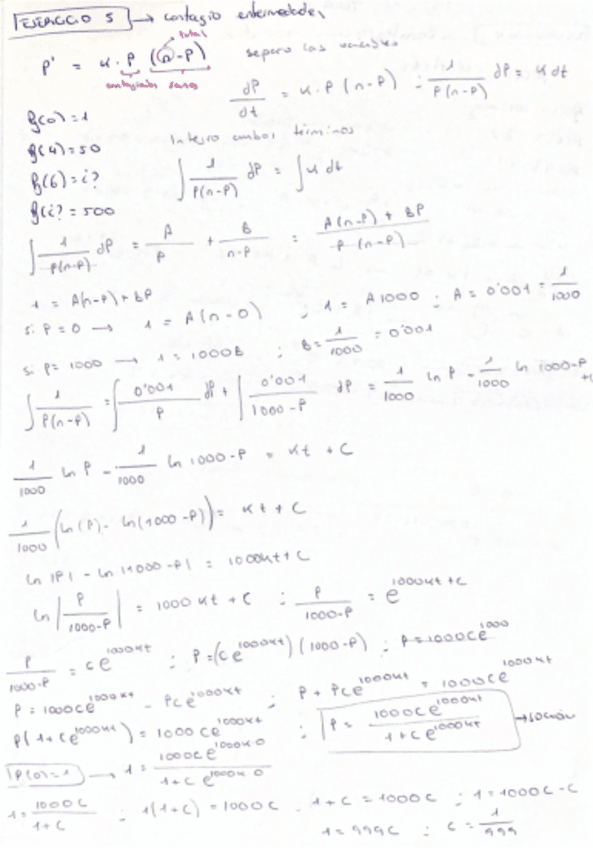 EJERCICIO 5 → contagio enfermedades
total
P' = K · P (n-P) separo las variables
contagiados sanos
dP/dt = K · P (n-P) ; 1/P(n-P) dP = K dt
f(0)=1
Integro ambos términos
f(4)=50
f(6)=¿?
∫ 1/P(n-P) dP = ∫ K dt
f(¿? = 500
∫ 1/P(n-P) dP = A/P + B/n-P = A(n-P) + BP / P(n-P)
1 = A(n-P) + BP
si P=0 → 1 = A(n-0) ; 1 = A1000 ; A = 0'001 = 1/1000
si P=1000 → 1 = 1000B ; B = 1/1000 = 0'001
∫ 1/P(n-P) = ∫ 0'001/P dP + ∫ 0'001/1000-P dP = 1/1000 ln P - 1/1000 ln 1000-P
1/1000 ln P - 1/1000 ln 1000-P = Kt + C
1/1000 (ln(P) - ln(1000-P)) = Kt + C
ln |P| - ln |1000-P| = 1000Kt + C
ln |P/1000-P| = 1000Kt + C ; P/1000-P = e^1000Kt+C
P/1000-P = Ce^1000Kt ; P = (Ce^1000Kt)(1000-P) ; P=1000Ce^1000
P = 1000Ce^1000Kt - PCe^1000Kt ; P + PCe^1000Kt = 1000Ce^1000Kt
P(1+Ce^1000Kt) = 1000Ce^1000Kt ; P = 1000Ce^1000Kt / 1+Ce^1000Kt → solución
P(0)=1 → 1 = 1000Ce^1000K·0 / 1+Ce^1000K·0
1 = 1000C/1+C ; 1(1+C) = 1000C ; 1+C = 1000C ; 1 = 1000C-C
1 = 999C ; C = 1/999